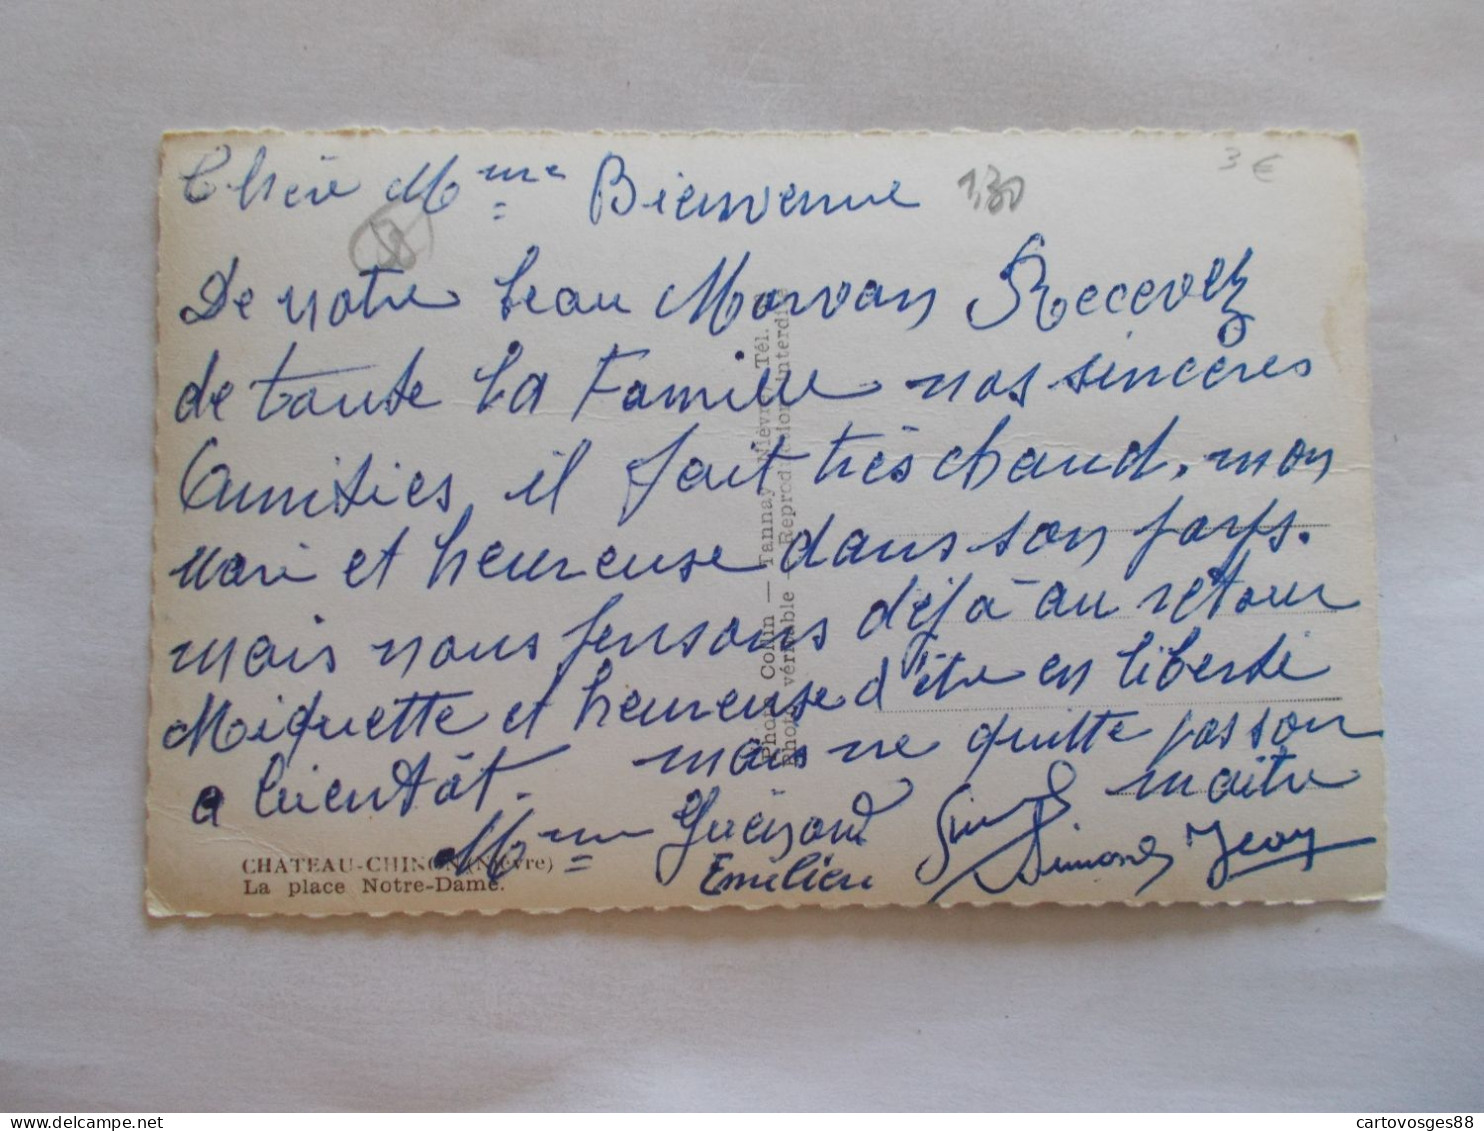 Chère Mme Bienvenue 130
3 €
De notre beau Morvan Recevez
de toute la Famille nos sincères
Amitiés, il fait très chaud. mon
mari et heureuse dans son pays.
mais nous pensons déjà au retour
Miquette et heureuse d'être en liberté
mais ne quitte pas son
maitre
a bientôt.
Mme
Emilien Simone Jean
CHATEAU-CHINON (Nièvre)
La place Notre-Dame.
Photo Collin — Tannay (Nièvre) Tél.
Photo véritable - Reproduction interdite
delcampe.net
cartovosges88